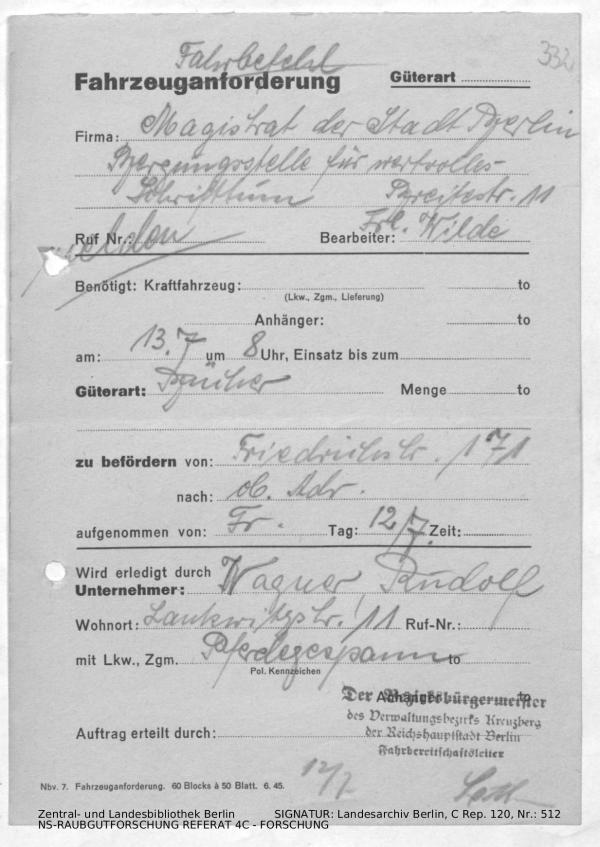 Fahrbefehl
332
Fahrzeuganforderung Güterart
Firma: Magistrat der Stadt Berlin
Bergungsstelle für wertvolles
Schrifttum Breitestr. 11
Ruf Nr.: Bearbeiter: Frl. Wilde
Benötigt: Kraftfahrzeug: to
(Lkw., Zgm., Lieferung)
Anhänger: to
am: 13.7 um 8 Uhr, Einsatz bis zum
Güterart: Bücher Menge to
zu befördern von: Friedrichstr. 171
nach: ob. Adr.
aufgenommen von: Fr. Tag: 12/7. Zeit:
Wird erledigt durch
Unternehmer: Wagner Rudolf
Wohnort: Lankwitzstr. 11 Ruf-Nr.:
mit Lkw., Zgm. Pferdegespann to
Pol. Kennzeichen
Anhänger to
Der Bezirksbürgermeister
des Verwaltungsbezirks Kreuzberg
der Reichshauptstadt Berlin
Fahrbereitschaftsleiter
Auftrag erteilt durch:
12/7
Nbv. 7. Fahrzeuganforderung. 60 Blocks à 50 Blatt. 6. 45.
Zentral- und Landesbibliothek Berlin SIGNATUR: Landesarchiv Berlin, C Rep. 120, Nr.: 512
NS-RAUBGUTFORSCHUNG REFERAT 4C - FORSCHUNG